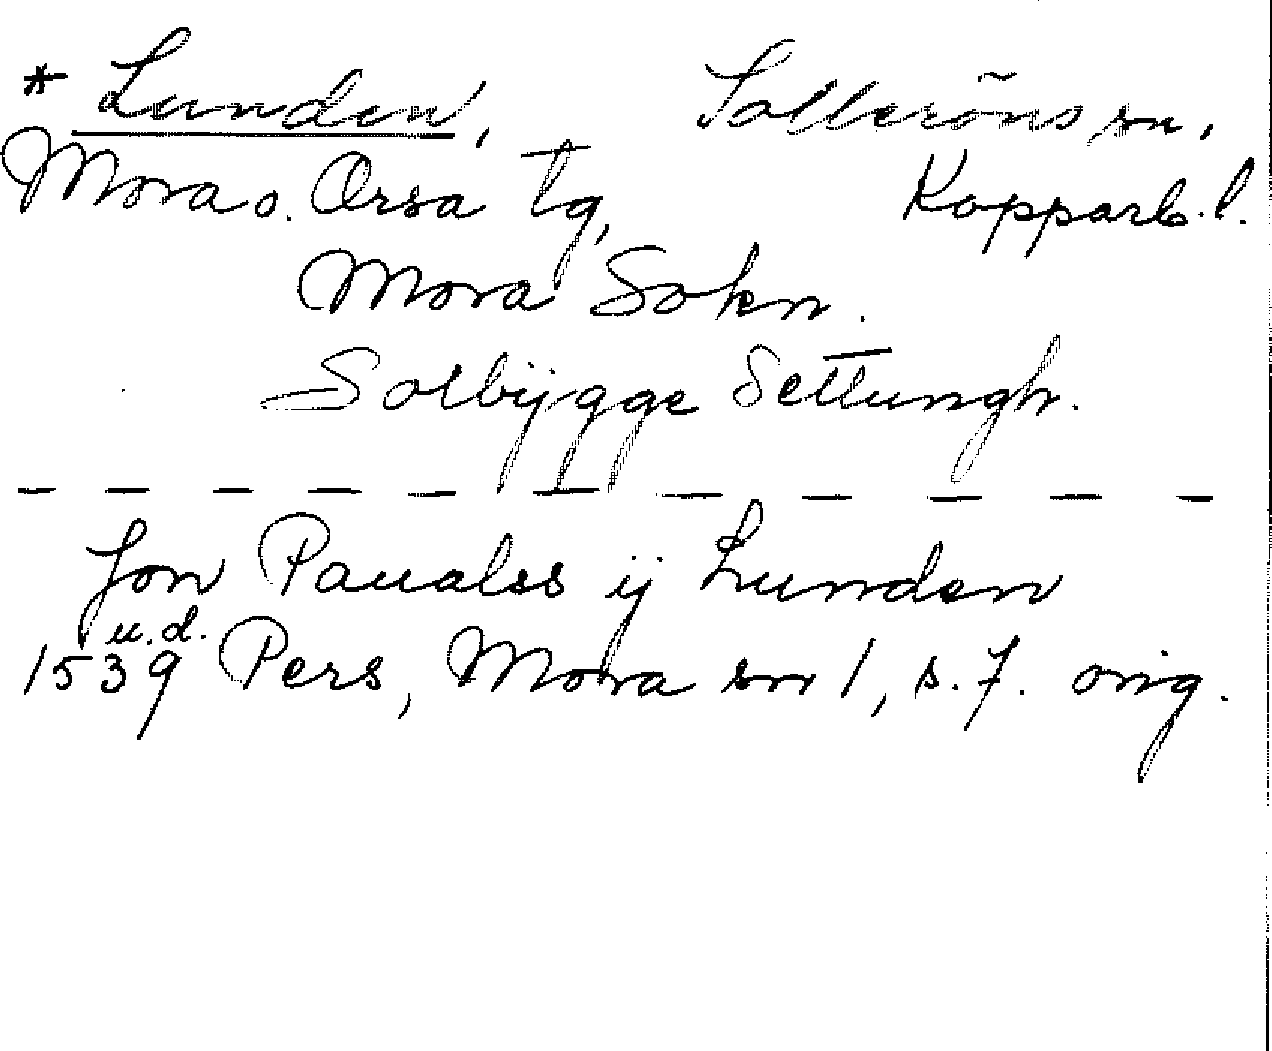 * Lunden, Solleröns sn,
Mora o. Orsa tg, Kopparb. l.
Mora Sokn.
Solbÿgge Settungh.
— — — — — — — — — — — —
Jon Paualss ij Lunden
u.d.
1539 Pers, Mora sn 1, s. 7. orig.